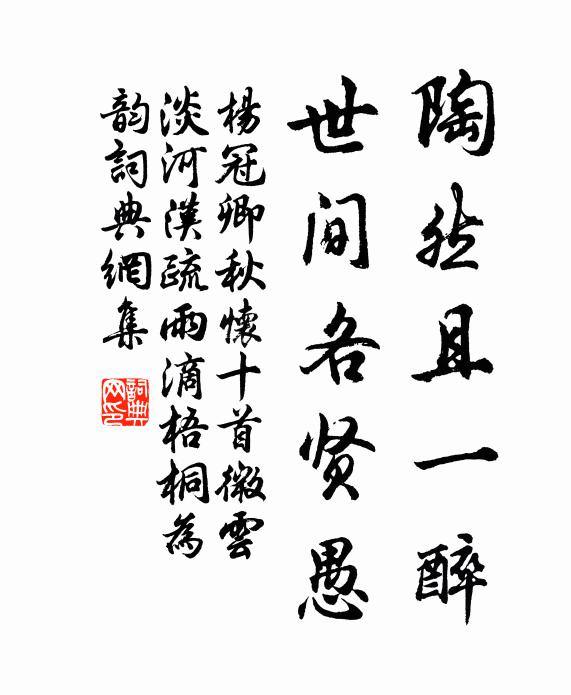 陶然且一醉
世间各贤愚
楊冠卿秋懷十首微雲
淡河漢疏雨滴梧桐為
韵詞典網集
詞典网印